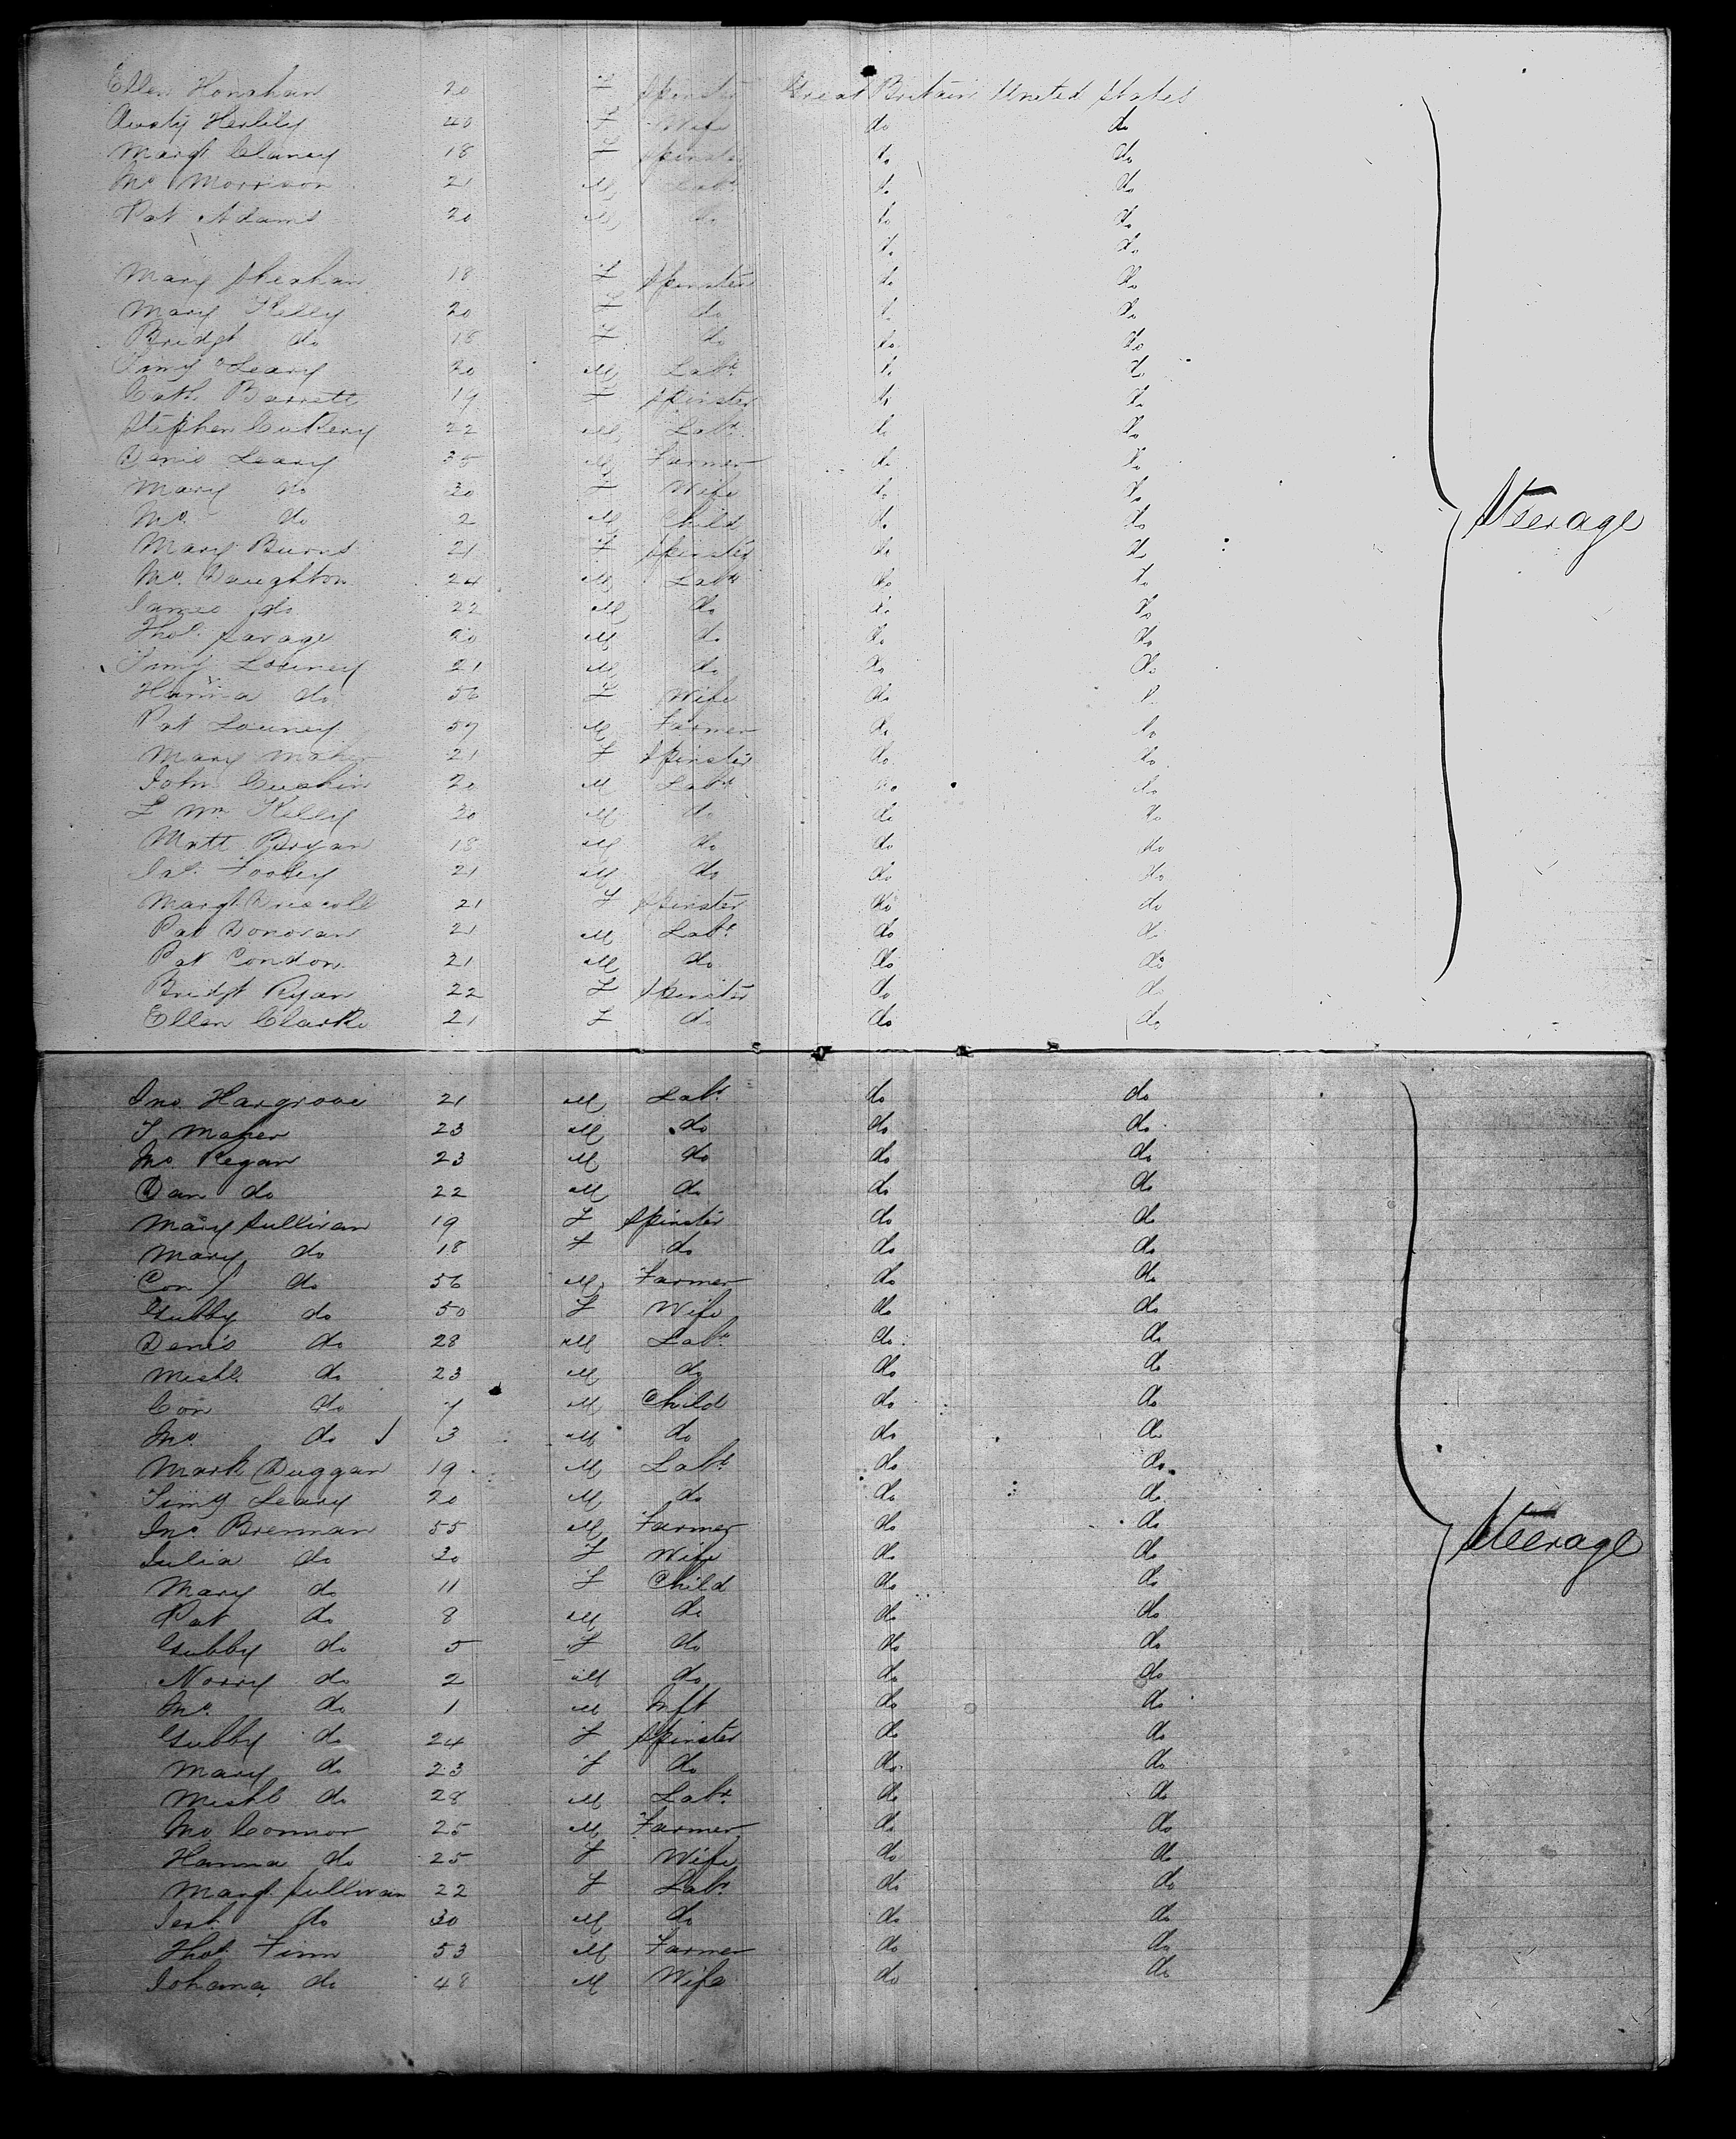 Ellen Honahan 20 F Spinster Great Britain United States
Herlihy 40 F Wife do do
Margt Clancy 18 F Spinster do do
Jno Morrison 21 M Labr do do
Pat Adams 20 M do do do
do do
Mary Sheahan 18 F Spinster do do
Mary Kelly 20 F do do do
Bridgt do 18 F do do do
Timy O'Leary 20 M Labr do do
Cath Barrett 19 F Spinster do do
Stephen 22 M Labr do do
Denis Leary 35 M Farmer do do
Mary do 30 F Wife do do
Jno do 2 M Child do do
Steerage
Mary Burns 21 F Spinster do do
Jno Daughton 24 M Labr do do
James do 22 M do do do
Thos Savage 20 M do do do
Timy Looney 21 M do do do
Hanna do 56 F Wife do do
Pat Looney 57 M Farmer do do
Mary Maher 21 F Spinster do do
John Cushin 20 M Labr do do
Wm Kelly 30 M do do do
Matt Bryan 18 M do do do
Jas. Fooley 21 M do do do
Margt Driscoll 21 F Spinster do do
Pat Donovan 21 M Labr do do
Pat Condon 21 M do do do
Bridgt Ryan 22 F Spinster do do
Ellen Clarke 21 F do do do
Jno Hargrove 21 M Labr do do
Maher 23 M do do do
Jno Regan 23 M do do do
Dan do 22 M do do do
Mary Sullivan 19 F Spinster do do
Mary do 18 F do do do
Con do 56 M Farmer do do
Gubby do 50 F Wife do do
Denis do 28 M Labr do do
Michl do 23 M do do do
Con do 7 M Child do do
Jno do 3 M do do do
Mark Duggan 19 M Labr do do
Timy Leary 20 M do do do
Jno Brennan 55 M Farmer do do
Steerage
Julia do 30 F Wife do do
Mary do 11 F Child do do
Pat do 8 M do do do
Gubby do 5 F do do do
Norry do 2 M do do do
Jno do 1 M Inft do do
Gubby do 24 F Spinster do do
Mary do 23 F do do do
Michl do 28 M Labr do do
Jno Connor 25 M Farmer do do
Hanna do 25 F Wife do do
Margt Sullivan 22 F Labr do do
Jerh do 30 M do do do
Thos Finn 53 M Farmer do do
Johana do 48 M Wife do do